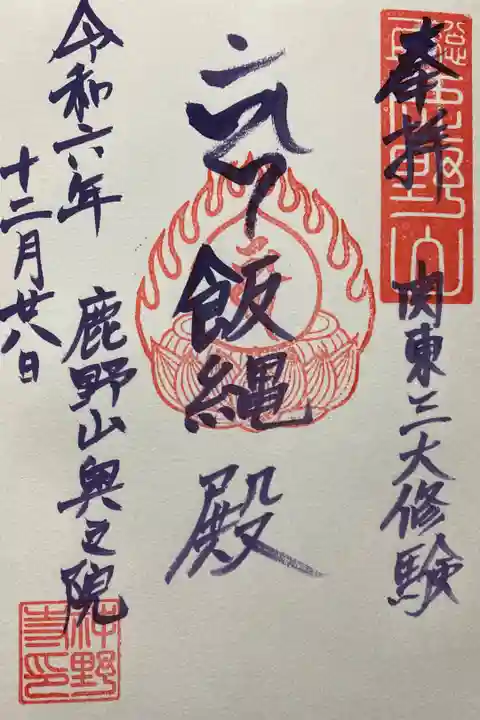 奉拝
関東三大修験
飯縄
殿
鹿野山奥之院
令和六年
十二月廿八日
神野寺印